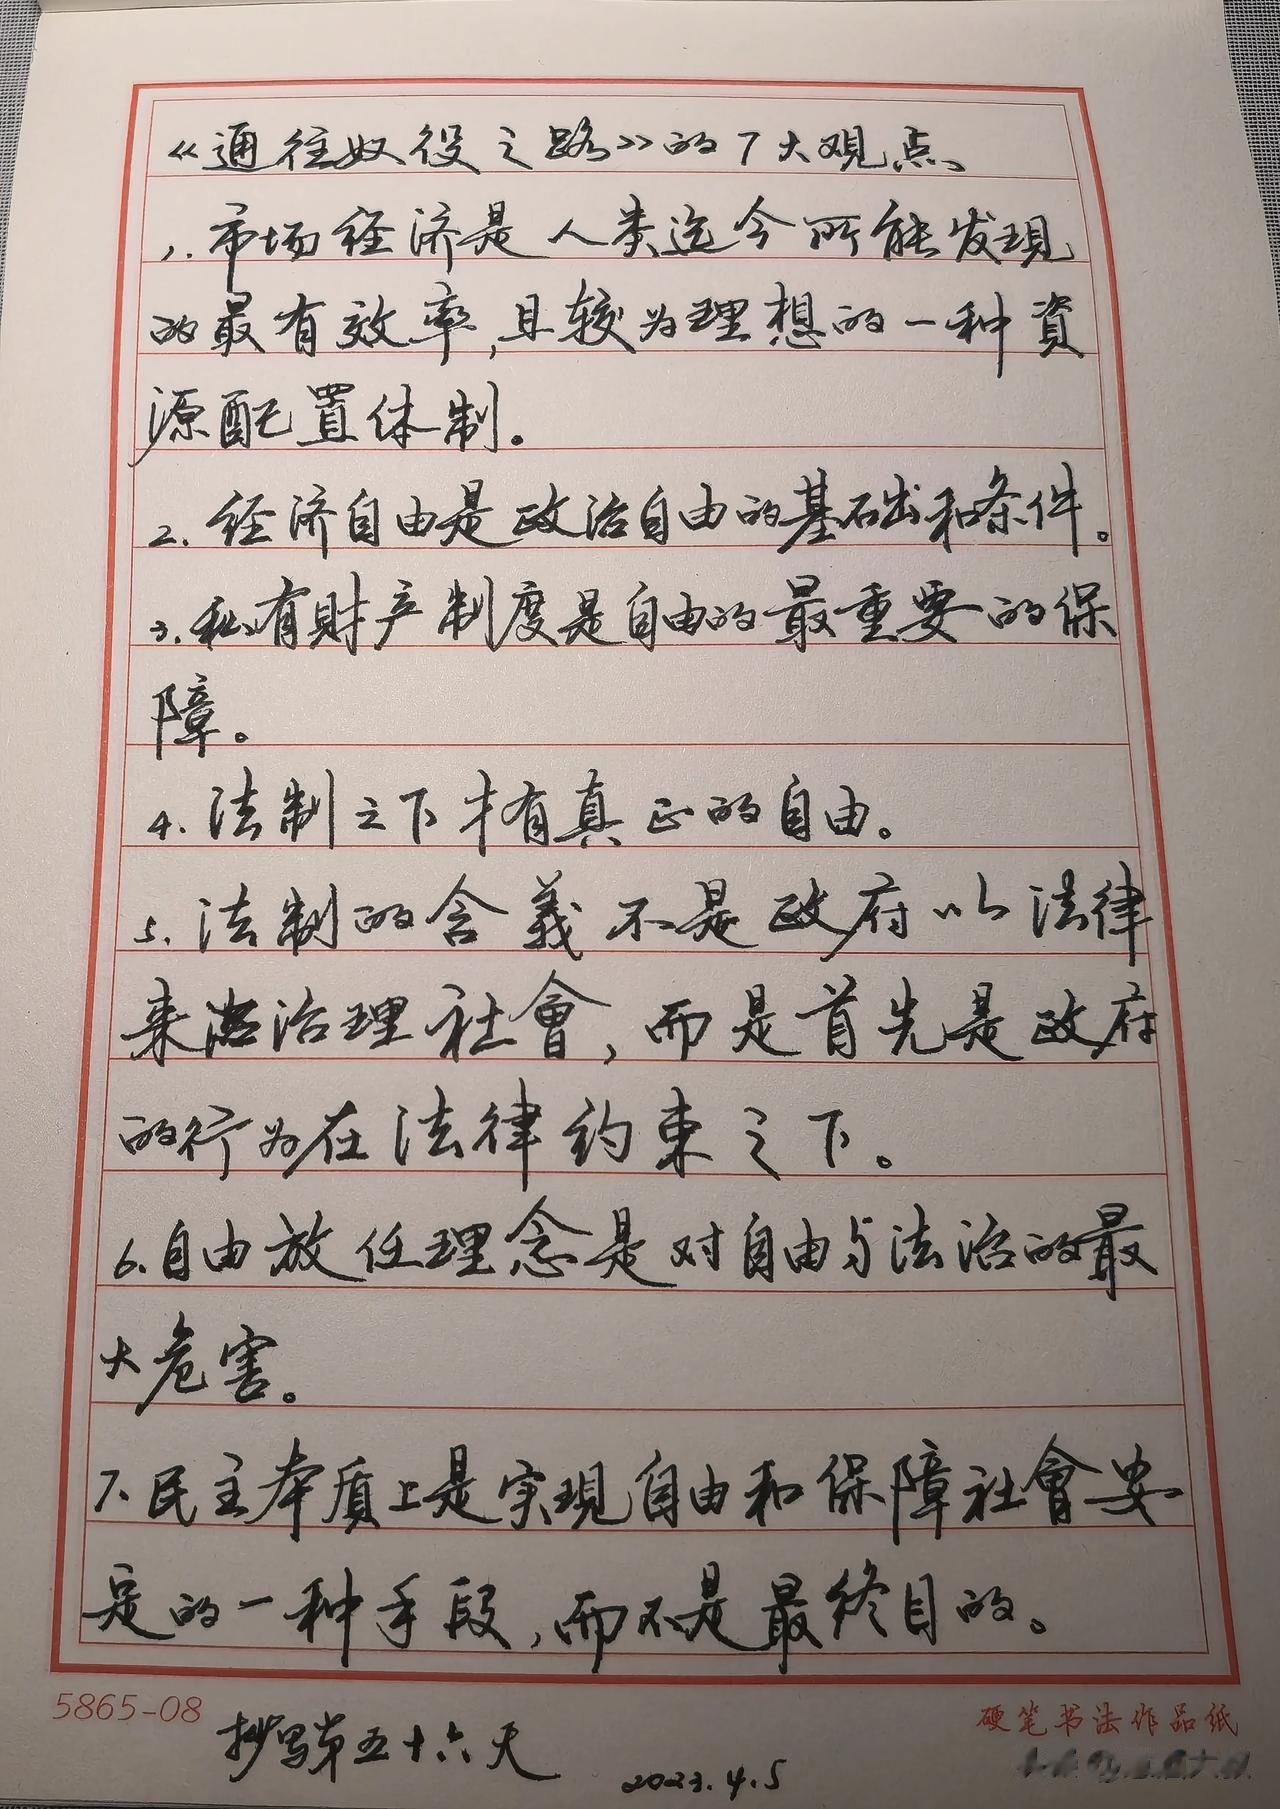 《通往奴役之路》的7大观点
1.市场经济是人类迄今所能发現
的最有效率,且较为理想的一种資
源配置体制。
2.经济自由是政治自由的基础和条件。
3.私有財产制度是自由的最重要的保
障。
4.法制之下才有真正的自由。
5.法制的含義不是政府以法律
来治理社會,而是首先是政府
的行为在法律约束之下。
6.自由放任理念是对自由与法治的最
大危害。
7.民主本质上是实現自由和保障社會安
定的一种手段,而不是最终目的。
5865-08
硬笔书法作品纸
抄写第五十六天
2023.4.5